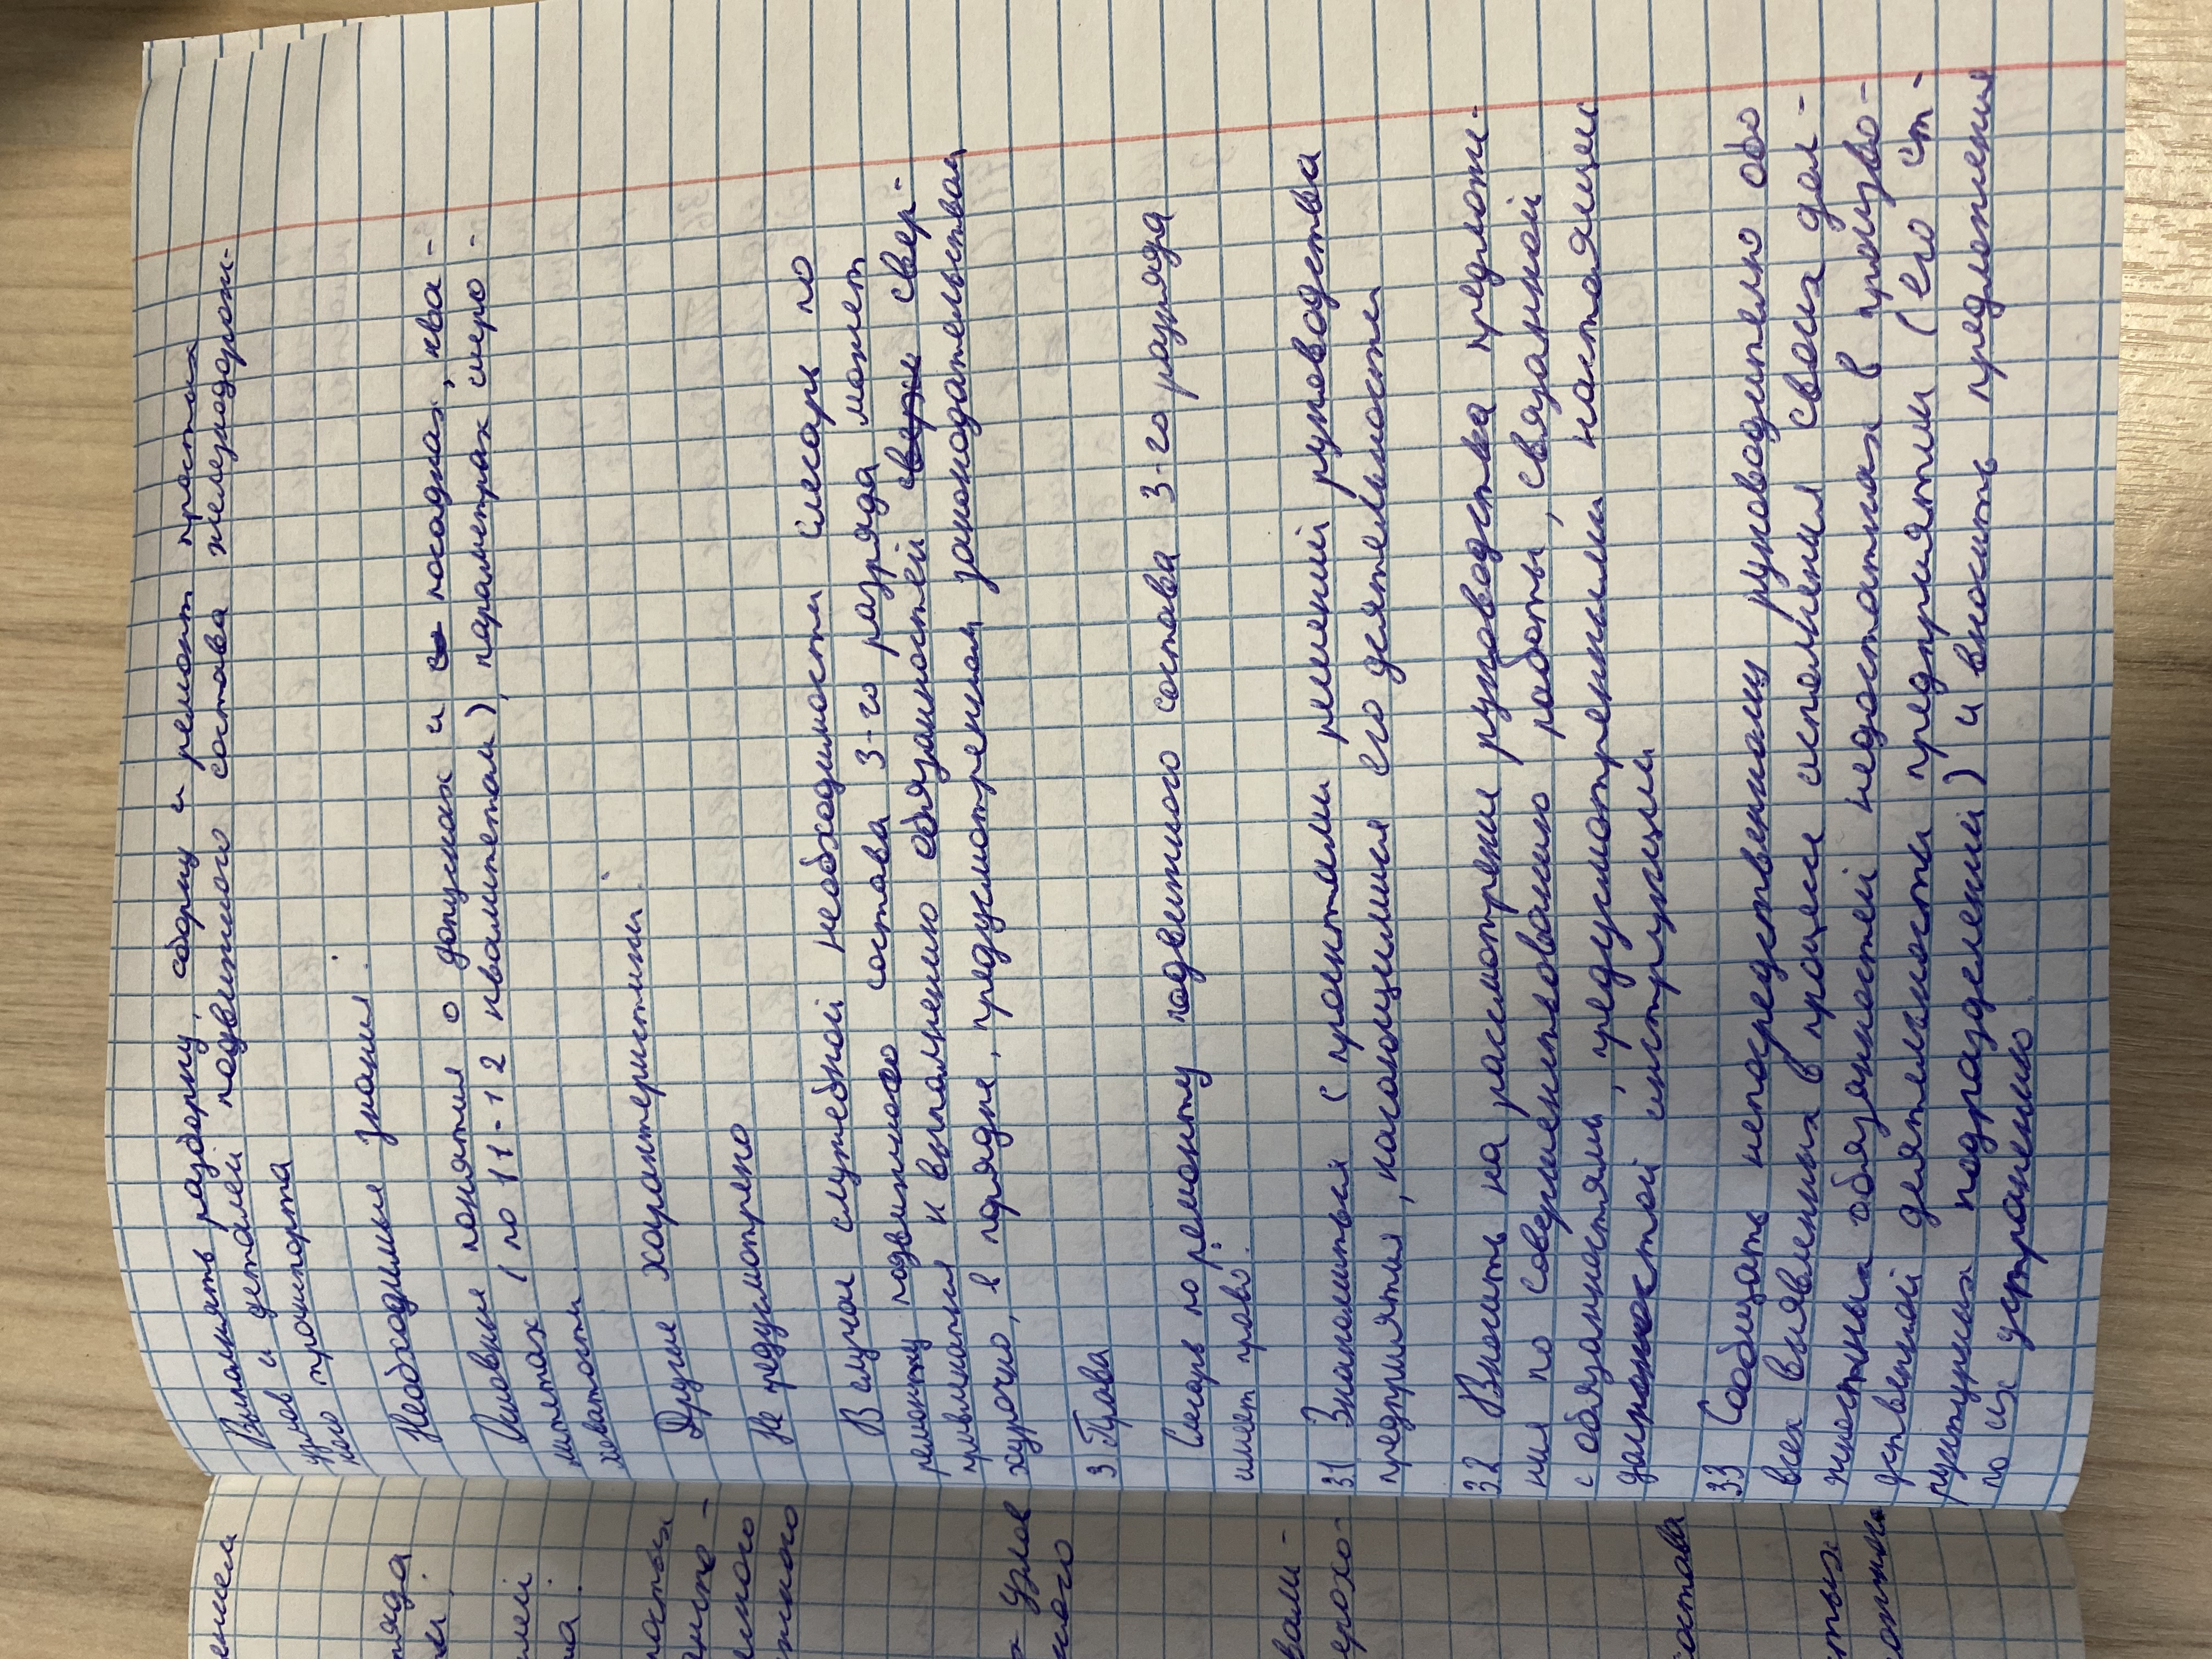 Выполнять разборку, сборку и ремонт простых
узлов и деталей подвижного состава железнодорож-
ного транспорта
Необходимые знания:
Основные понятия о допусках и посадках, ква-
литетах (по 11-12 квалитетам), параметрах шеро-
ховатости.
Другие характеристики:
Не предусмотрено
В случае служебной необходимости слесарь по
ремонту подвижного состава 3-го разряда может
привлекаться к выполнению обязанностей сверх свер-
хурочно, в порядке, предусмотренном законодательством
3 Права
Слесарь по ремонту подвижного состава 3-го разряда
имеет право:
3.1 Знакомиться с проектами решений руководства
предприятия, касающимися его деятельности
3.2 Вносить на рассмотрение руководства предложе-
ния по совершенствованию работы, связанной
с обязанностями, предусмотренными настоящей
должностной инструкцией
3.3 Сообщать непосредственному руководителю обо
всех выявленных в процессе исполнения своих дол-
жностных обязанностей недостатках в произво-
дственной деятельности предприятии (его ст-
руктурных подразделений) и вносить предложения
по их устранению
ением
ряда
ного
узлов
ного
вами-
рохо-
остава